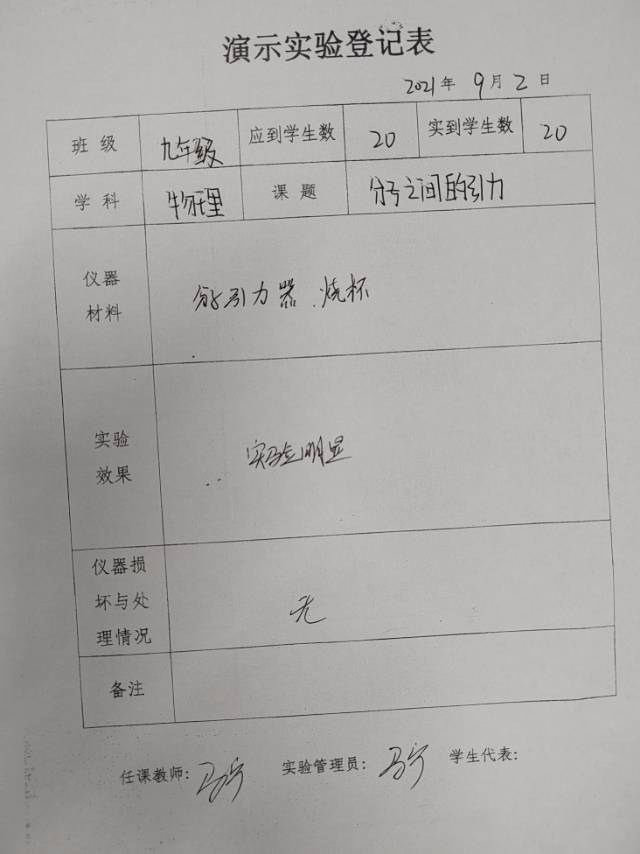 演示实验登记表
2021年 9月 2日
班级 九年级 应到学生数 20 实到学生数 20
学科 物理 课题 分子之间的引力
仪器
材料
分子引力器、烧杯
实验
效果
实验明显
仪器损
坏与处
理情况
无
备注
任课教师: 马宁 实验管理员: 马宁 学生代表: